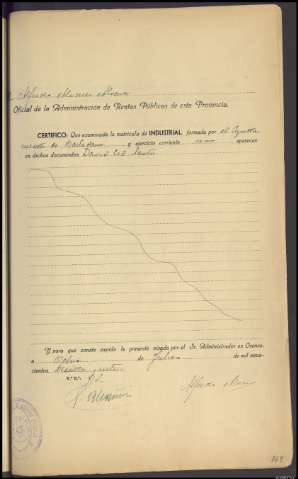 Alfredo
Oficial de la Administración de Rentas Públicas de esta Provincia.
CERTIFICO: Que examinada la matrícula de INDUSTRIAL formada por el Ayunta
miento de y ejercicio corriente no aparecen
en dichos documentos David Cid
Y para que conste expido la presente visada por el Sr. Administrador en Orense,
a de Julio de mil nove-
cientos treinta y siete
V.º B.º
Alfredo